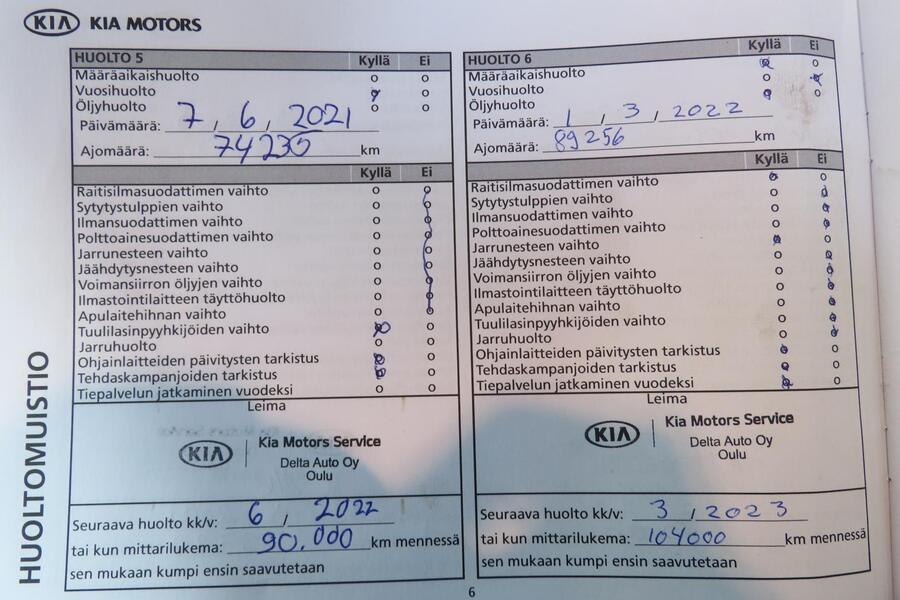 KIA KIA MOTORS
HUOLTO 5 Kyllä Ei
Määräaikaishuolto o o
Vuosihuolto o
Öljyhuolto o o
Päivämäärä: 7 , 6 , 2021
Ajomäärä: 74230 km
Kyllä Ei
Raitisilmasuodattimen vaihto o
Sytytystulppien vaihto o o
Ilmansuodattimen vaihto o o
Polttoainesuodattimen vaihto o o
Jarrunesteen vaihto o o
Jäähdytysnesteen vaihto o o
Voimansiirron öljyjen vaihto o o
Ilmastointilaitteen täyttöhuolto o o
Apulaitehihnan vaihto o o
Tuulilasinpyyhkijöiden vaihto o
Jarruhuolto o o
Ohjainlaitteiden päivitysten tarkistus o
Tehdaskampanjoiden tarkistus o
Tiepalvelun jatkaminen vuodeksi o o
Leima
KIA Kia Motors Service
Delta Auto Oy
Oulu
Seuraava huolto kk/v: 6 , 2022
tai kun mittarilukema: 90.000 km mennessä
sen mukaan kumpi ensin saavutetaan
HUOLTO 6 Kyllä Ei
Määräaikaishuolto o
Vuosihuolto o
Öljyhuolto o
Päivämäärä: 1 , 3 , 2022
Ajomäärä: 89256 km
Kyllä Ei
Raitisilmasuodattimen vaihto o
Sytytystulppien vaihto o
Ilmansuodattimen vaihto o
Polttoainesuodattimen vaihto o
Jarrunesteen vaihto o
Jäähdytysnesteen vaihto o
Voimansiirron öljyjen vaihto o
Ilmastointilaitteen täyttöhuolto o
Apulaitehihnan vaihto o
Tuulilasinpyyhkijöiden vaihto o
Jarruhuolto o
Ohjainlaitteiden päivitysten tarkistus o
Tehdaskampanjoiden tarkistus o
Tiepalvelun jatkaminen vuodeksi o
Leima
KIA Kia Motors Service
Delta Auto Oy
Oulu
Seuraava huolto kk/v: 3 , 2023
tai kun mittarilukema: 104000 km mennessä
sen mukaan kumpi ensin saavutetaan
HUOLTOMUISTIO
6